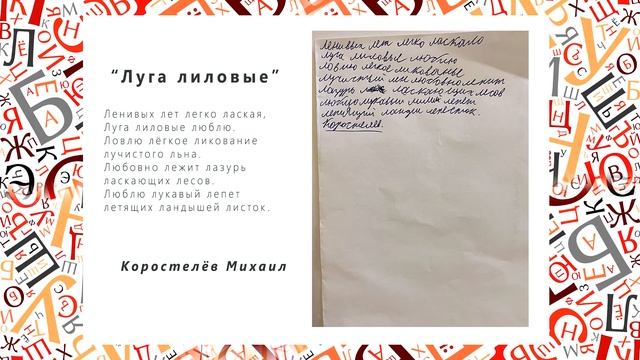 “Луга лиловые”
Ленивых лет легко лаская,
Луга лиловые люблю.
Ловлю лёгкое ликование
лучистого льна.
Любовно лежит лазурь
ласкающих лесов.
Люблю лукавый лепет
летящих ландышей листок.
Коростелёв Михаил
Ленивых лет легко лаская
луга лиловые люблю
ловлю легкое ликованье
лучистый лен любовно
лазурь ласкающих лесов
люблю лукавый лепет
Коростелев.